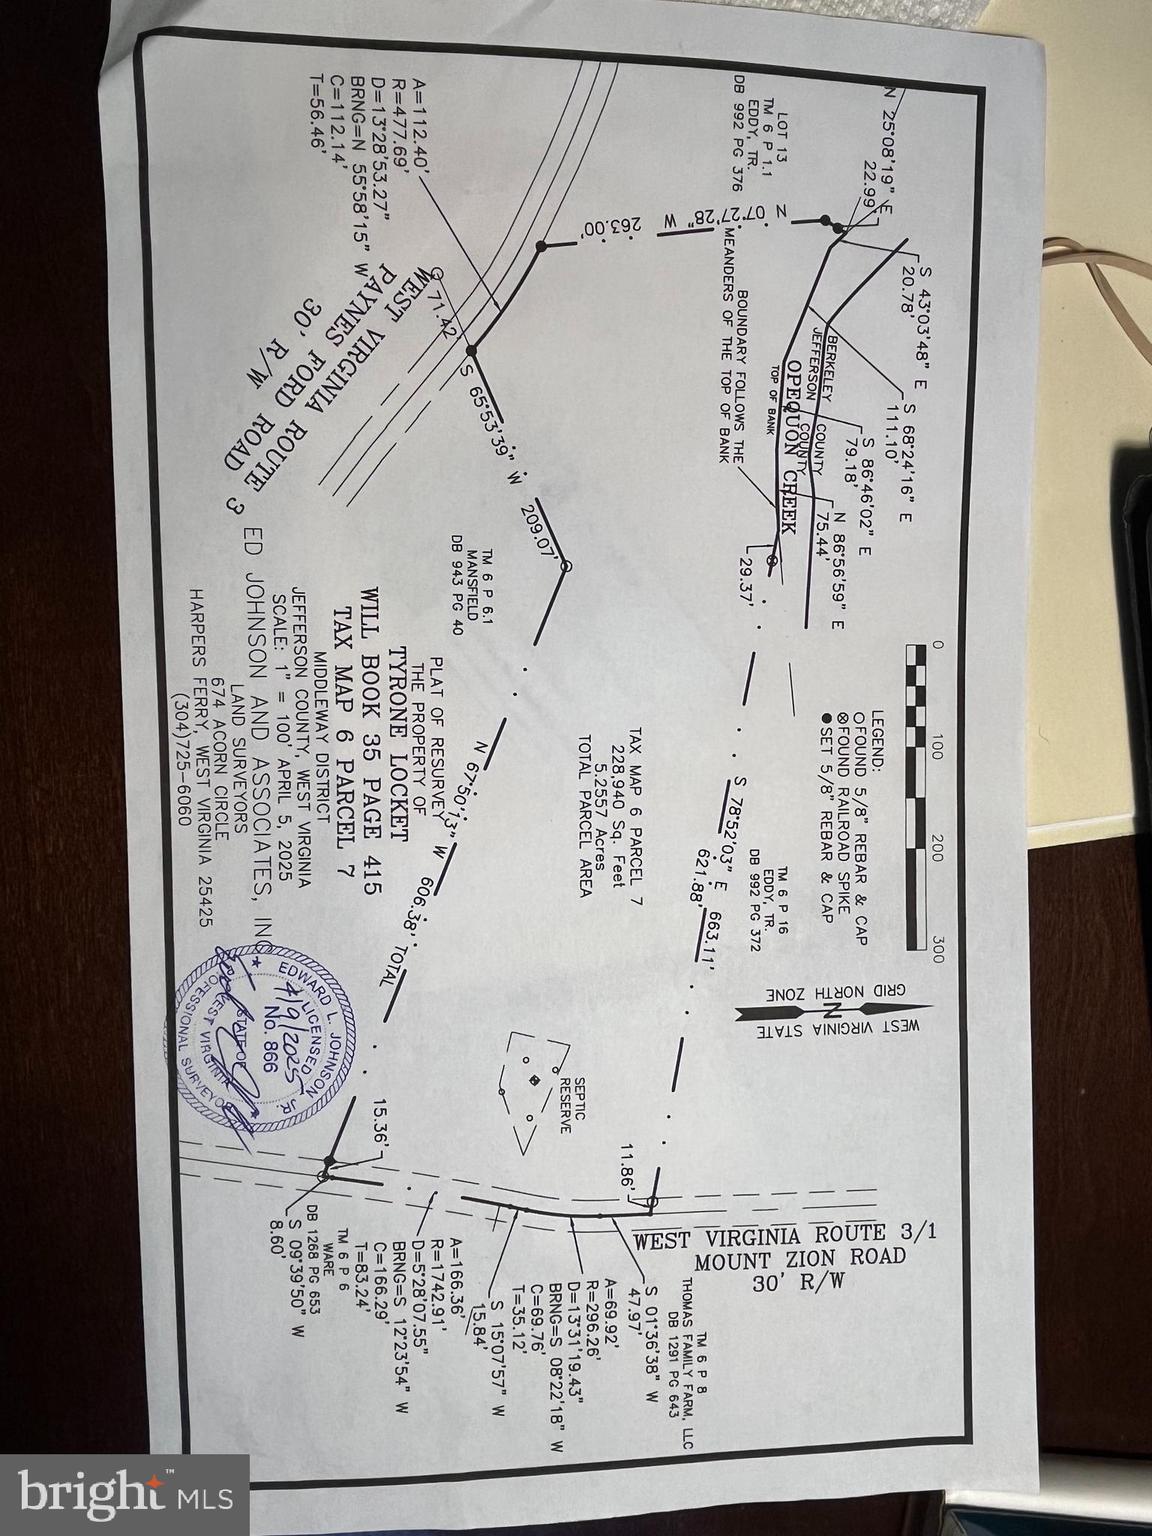 N 25°08'19" E
22.99'
S 43°03'48" E
20.78'
S 68°24'16" E
111.10'
S 86°46'02" E
79.18'
N 86°56'59" E
75.44'
29.37'
LOT 13
TM 6 P 1.1
EDDY, TR.
DB 992 PG 376
N 07°27'28" W
263.00'
BERKELEY COUNTY
JEFFERSON COUNTY
OPEQUON CREEK
TOP OF BANK
BOUNDARY FOLLOWS THE
MEANDERS OF THE TOP OF BANK
0 100 200 300
LEGEND:
FOUND 5/8" REBAR & CAP
FOUND RAILROAD SPIKE
SET 5/8" REBAR & CAP
WEST VIRGINIA STATE
N
GRID NORTH ZONE
A=112.40'
R=477.69'
D=13°28'53.27"
BRNG=N 55°58'15" W
C=112.14'
T=56.46'
71.42
WEST VIRGINIA ROUTE 3
PAYNES FORD ROAD
30' R/W
S 65°53'39" W
209.07'
TM 6 P 6.1
MANSFIELD
DB 943 PG 40
S 78°52'03" E 663.11'
621.88'
TM 6 P 16
EDDY, TR.
DB 992 PG 372
TAX MAP 6 PARCEL 7
228,940 Sq. Feet
5.2557 Acres
TOTAL PARCEL AREA
N 67°50'13" W 606.38' TOTAL
SEPTIC
RESERVE
11.86'
15.36'
WEST VIRGINIA ROUTE 3/1
MOUNT ZION ROAD
30' R/W
TM 6 P 8
THOMAS FAMILY FARM, LLC
DB 1291 PG 643
S 01°36'38" W
47.97'
A=69.92'
R=296.26'
D=13°31'19.43"
BRNG=S 08°22'18" W
C=69.76'
T=35.12'
S 15°07'57" W
15.84'
A=166.36'
R=1742.91'
D=5°28'07.55"
BRNG=S 12°23'54" W
C=166.29'
T=83.24'
TM 6 P 6
WARE
DB 1268 PG 653
S 09°39'50" W
8.60'
PLAT OF RESURVEY
THE PROPERTY OF
TYRONE LOCKET
WILL BOOK 35 PAGE 415
TAX MAP 6 PARCEL 7
MIDDLEWAY DISTRICT
JEFFERSON COUNTY, WEST VIRGINIA
SCALE: 1" = 100' APRIL 5, 2025
ED JOHNSON AND ASSOCIATES, INC
LAND SURVEYORS
674 ACORN CIRCLE
HARPERS FERRY, WEST VIRGINIA 25425
(304)725-6060
EDWARD L. JOHNSON JR.
LICENSED
No. 866
4/9/2025
STATE OF
WEST VIRGINIA
PROFESSIONAL SURVEYOR
bright™ MLS